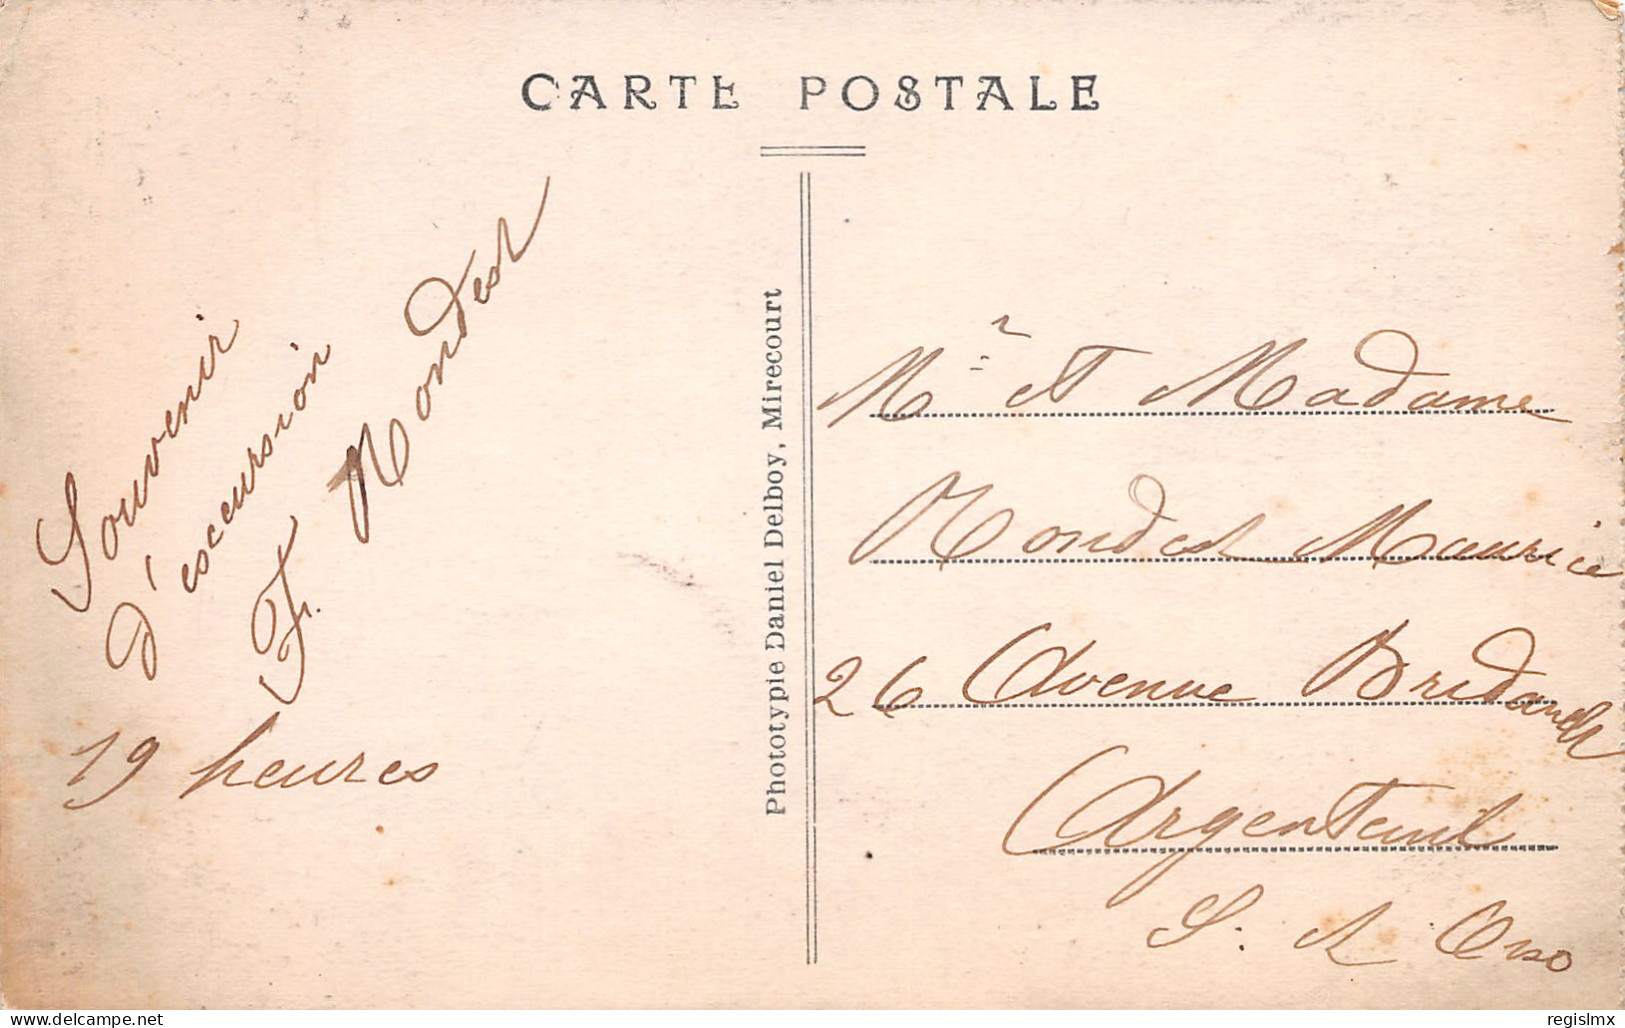 CARTE POSTALE
Souvenir
d'escursion
F. Mondest
19 heures
Phototypie Daniel Delboy, Mirecourt
Mr et Madame
Mondest Maurice
26 Avenue Bridault
Argenteuil
S. et Oise
regislmx